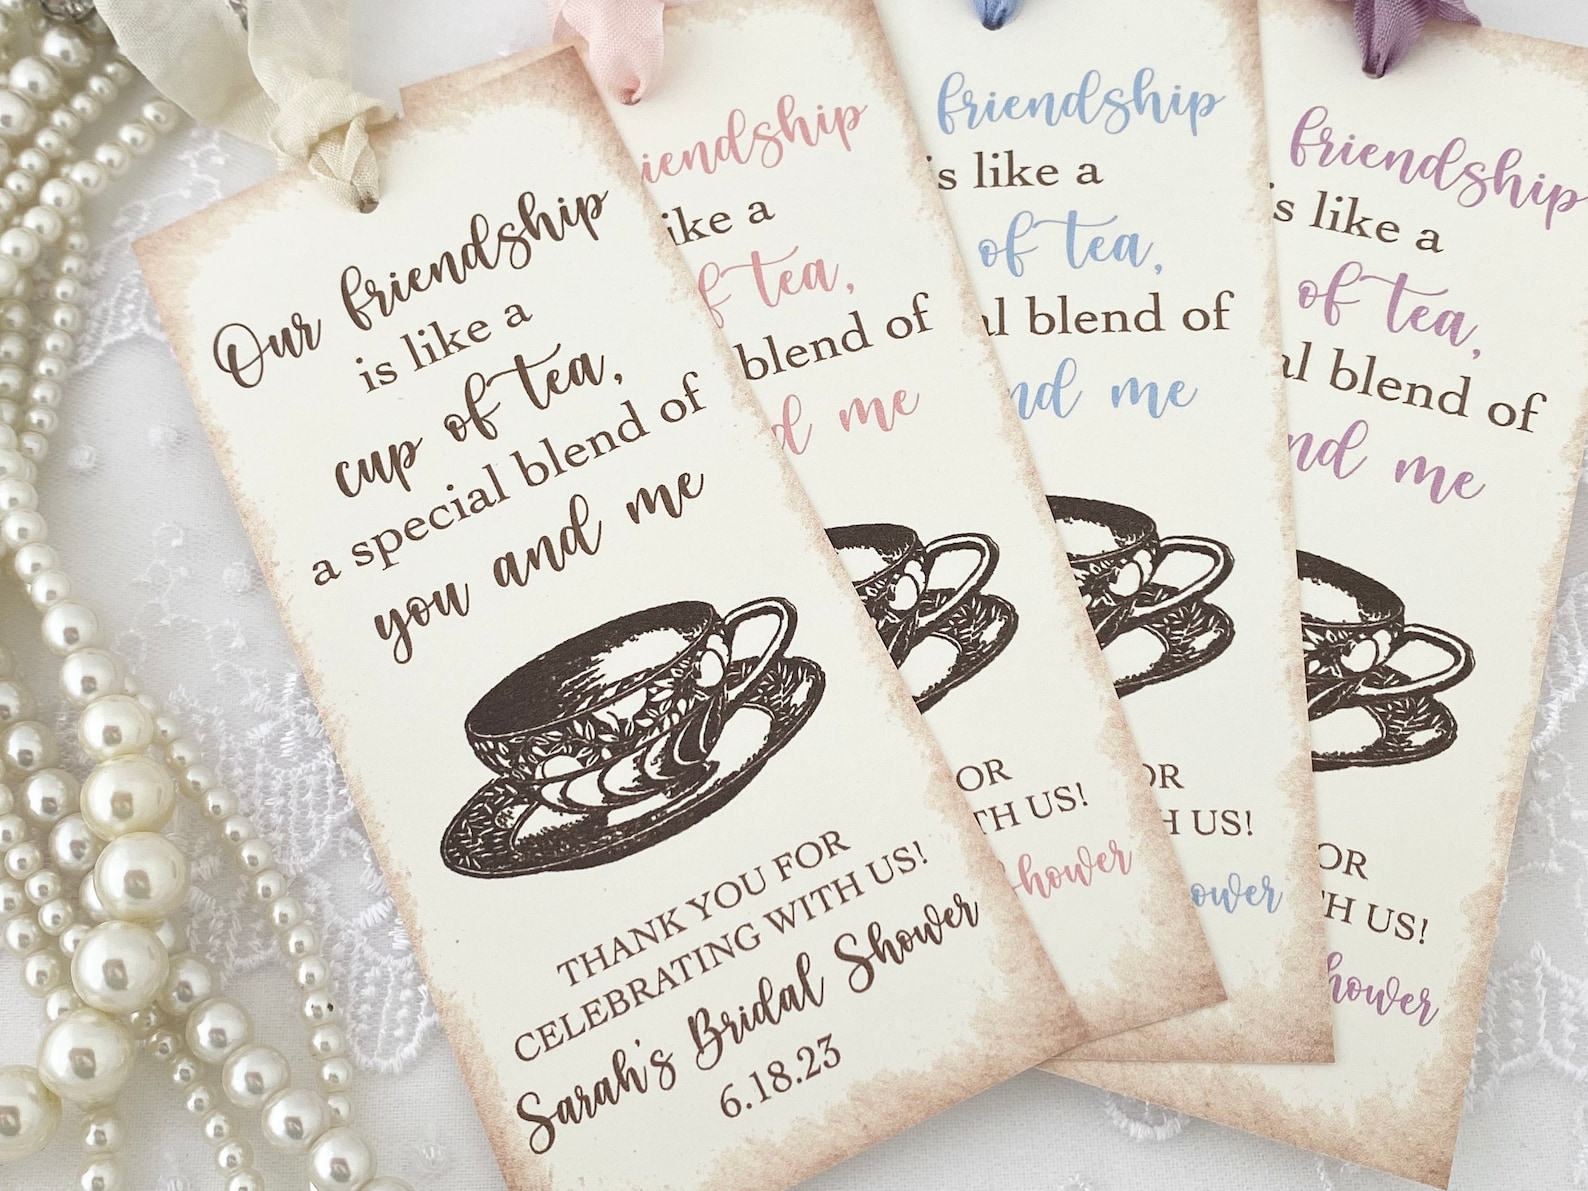 Our friendship
is like a
cup of tea,
a special blend of
you and me
THANK YOU FOR
CELEBRATING WITH US!
Sarah's Bridal Shower
6.18.23
iendship
ike a
f tea,
blend of
d me
OR
TH US!
Shower
friendship
is like a
of tea,
al blend of
nd me
OR
H US!
ower
friendship
s like a
of tea,
al blend of
nd me
OR
TH US!
hower